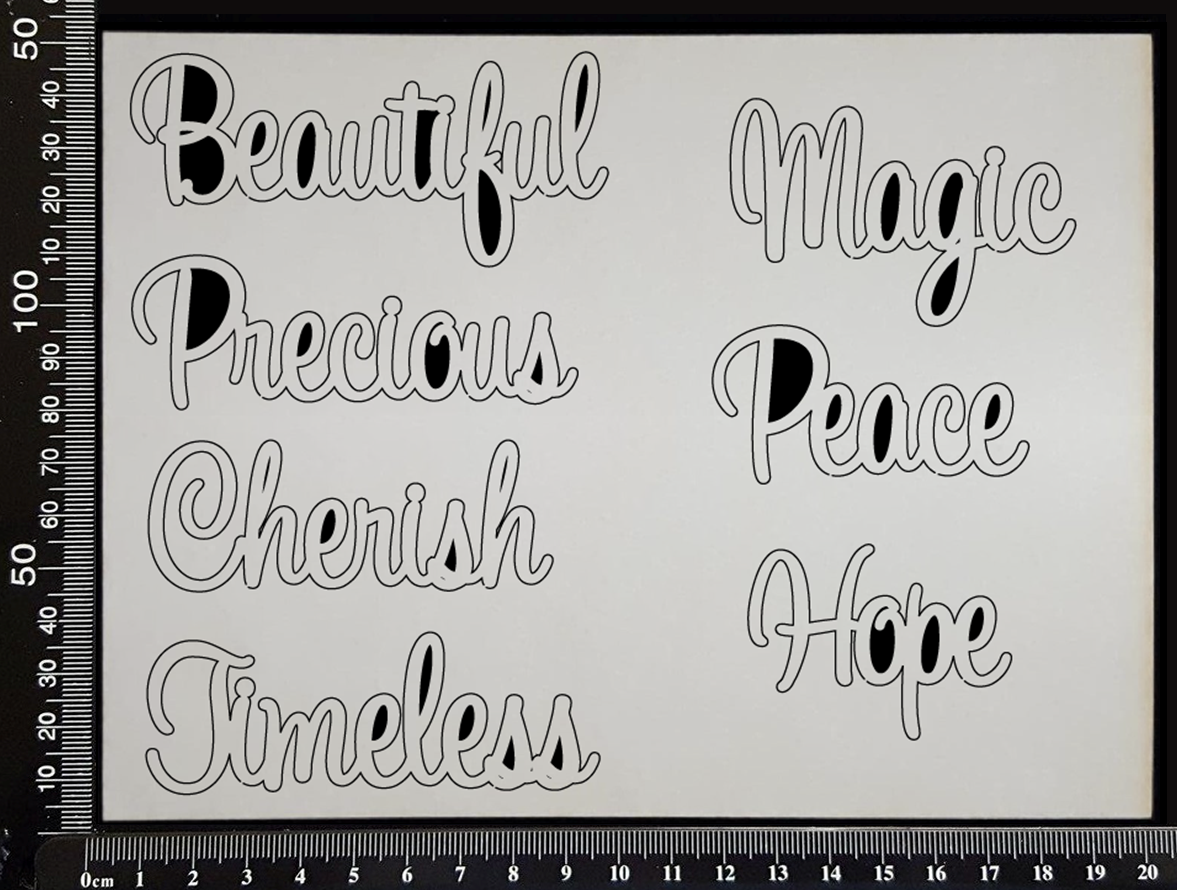 Beautiful
Precious
Cherish
Timeless
Magic
Peace
Hope
50
40
30
20
10
100
90
80
70
60
50
40
30
20
10
0cm 1 2 3 4 5 6 7 8 9 10 11 12 13 14 15 16 17 18 19 20